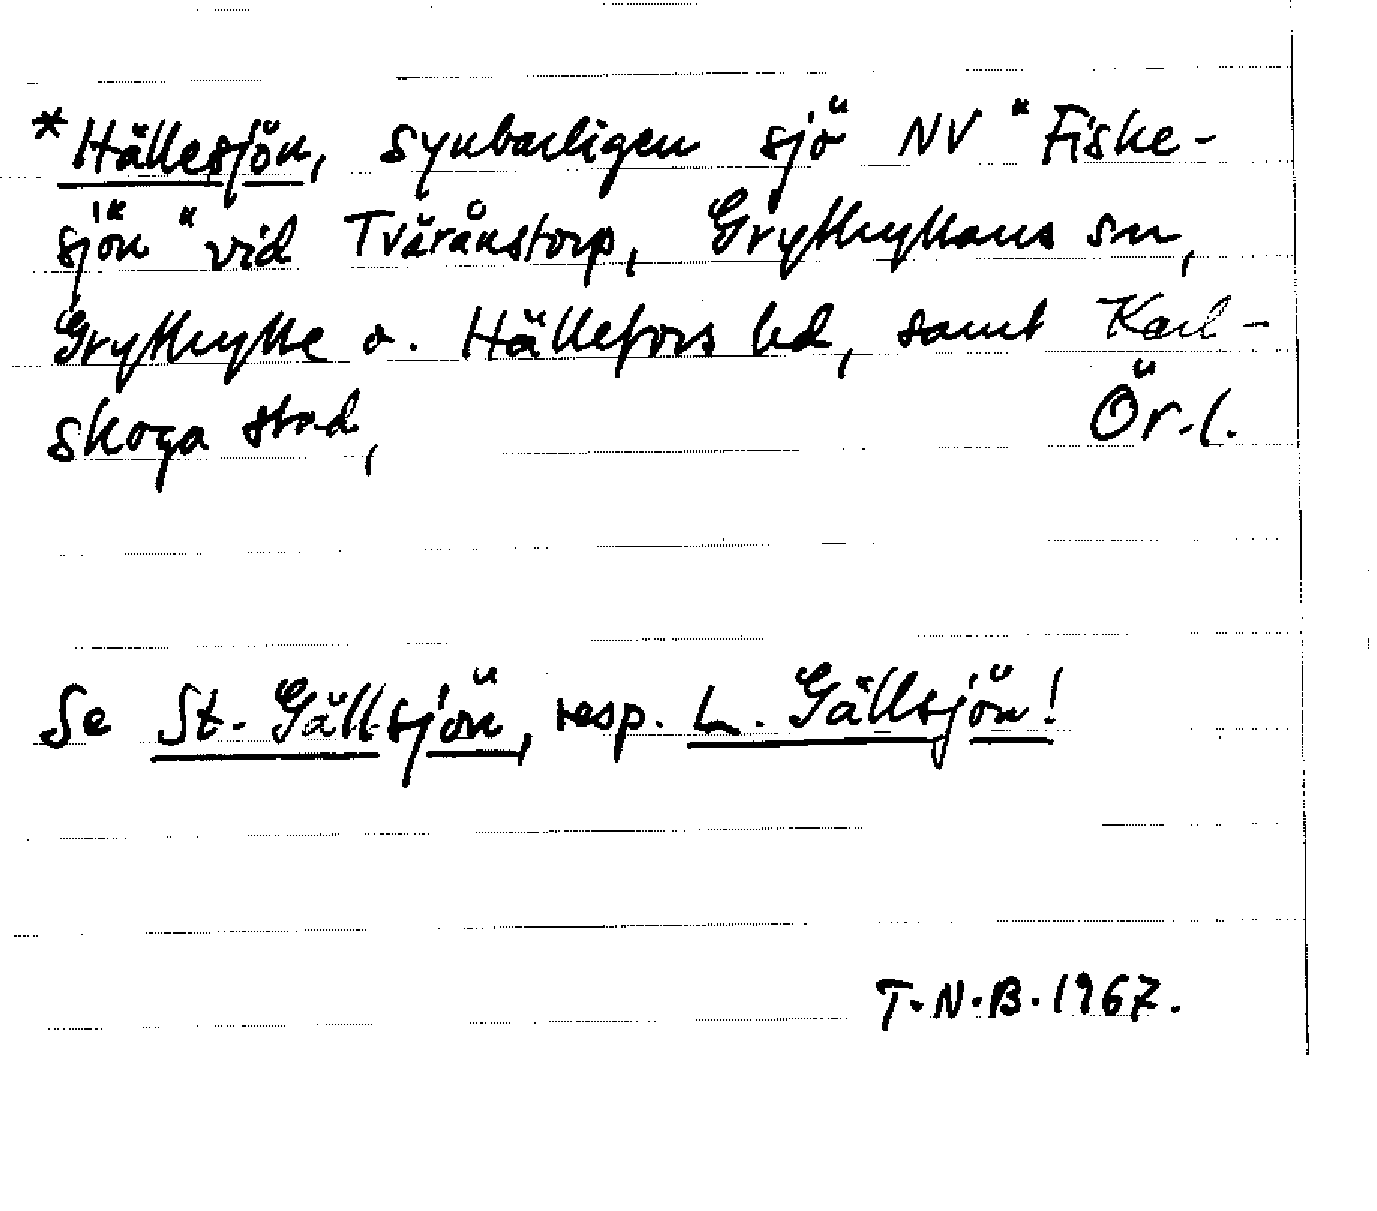 *Hällesjön, synbarligen sjö NV "Fiske-
sjön" vid Tvärånstorp, Grythyttans sn,
Grythytte o. Hällefors hd, samt Karl-
skoga stad, Ör.l.
Se St. Gällsjön, resp. L. Gällsjön!
T.N.B. 1967.